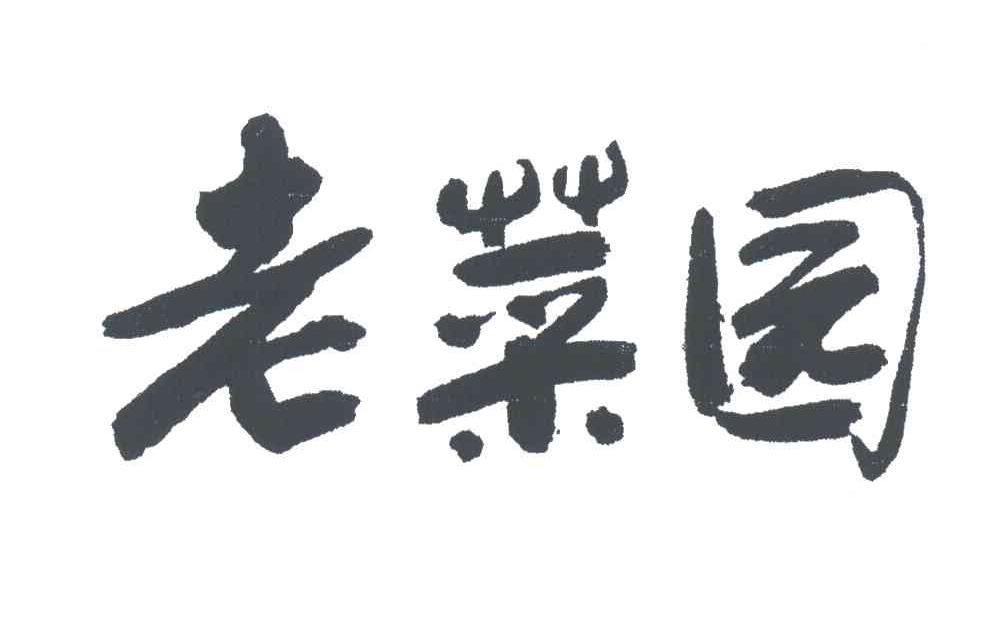 老菜园